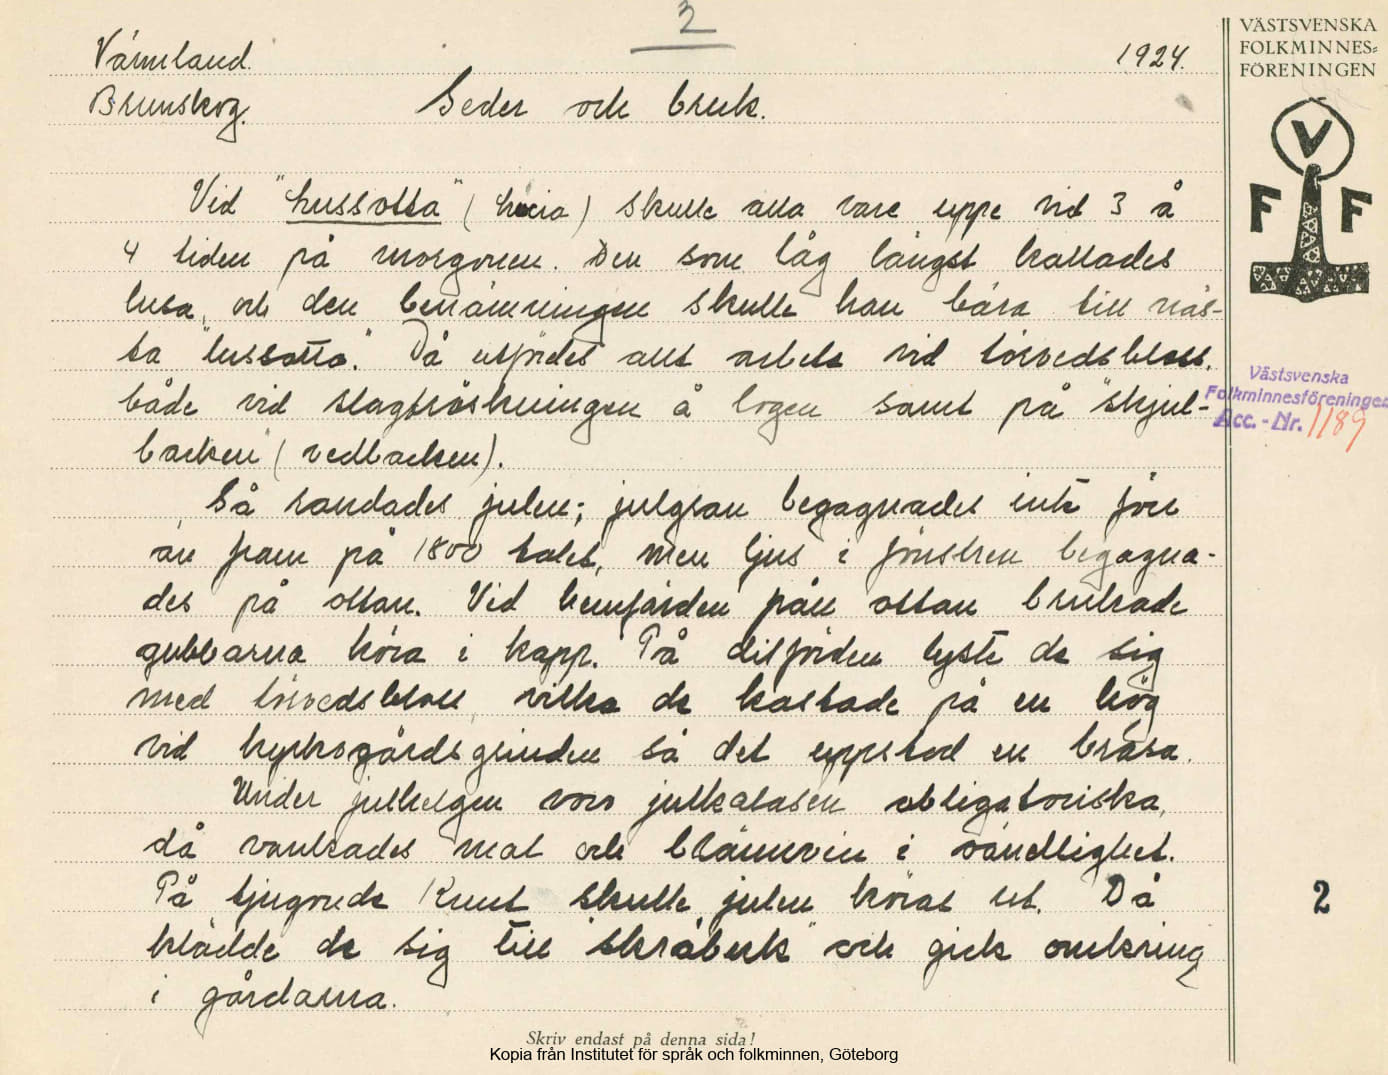 2
Värmland.
1924.
Brunskog.
Seder och bruk.
Vid "lussotta" (Lucia) skulle alla vare uppe vid 3 å
4 tiden på morgonen. Den som låg längst kallades
lusa, och den benämningen skulle han bära till näs-
ta "lussotta". Då utfördes allt arbete vid törvedsbloss,
både vid slagtröskningen å logen samt på "skjul-
backen" (vedbacken).
Så randades julen; julgran begagnades inte förr
än fram på 1800 talet, men ljus i fönstren begagna-
des på ottan. Vid hemfärden från ottan brukade
gubbarna köra i kapp. På ditfärden lyste de sig
med törvedsbloss vilka de kastade på en hög
vid kyrkogårdsgrinden så det uppstod en brasa.
Under julhelgen voro julkalasen obligatoriska,
då vankades mat och brännvin i oändlighet.
På tjugonde Knut skulle julen köras ut. Då
klädde de sig till "skråbuk" och gick omkring
i gårdarna.
Skriv endast på denna sida!
Kopia från Institutet för språk och folkminnen, Göteborg
VÄSTSVENSKA
FOLKMINNES-
FÖRENINGEN
V
F F
Västsvenska
Folkminnesföreningen
Acc. - Nr. 1189
2